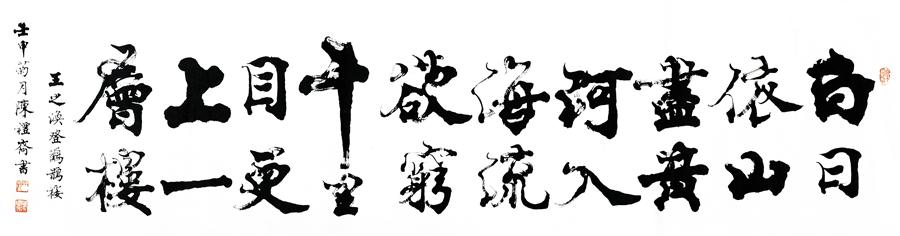 白日
依山
盡黃
河入
海流
欲窮
千里
目更
上一
層樓
王之渙登鸛鵲樓
壬申菊月陳禮齋書